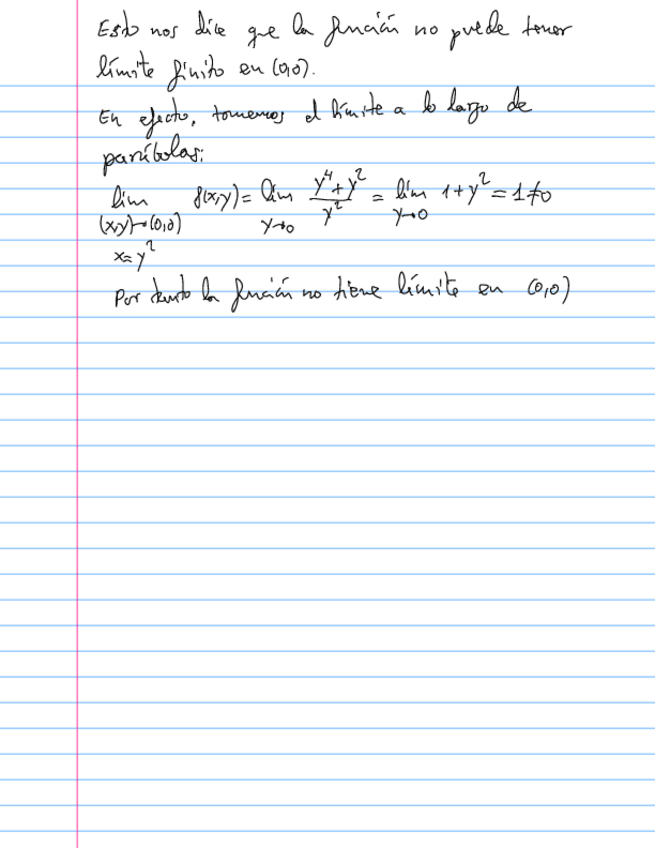 Esto nos dice que la función no puede tener
límite finito en (0,0).
En efecto, tomemos el límite a lo largo de
parábolas:
lím f(x,y) = lím y⁴+y²/y² = lím 1+y² = 1≠0
(x,y)→(0,0) y→0 y→0
x=y²
Por tanto la función no tiene límite en (0,0)